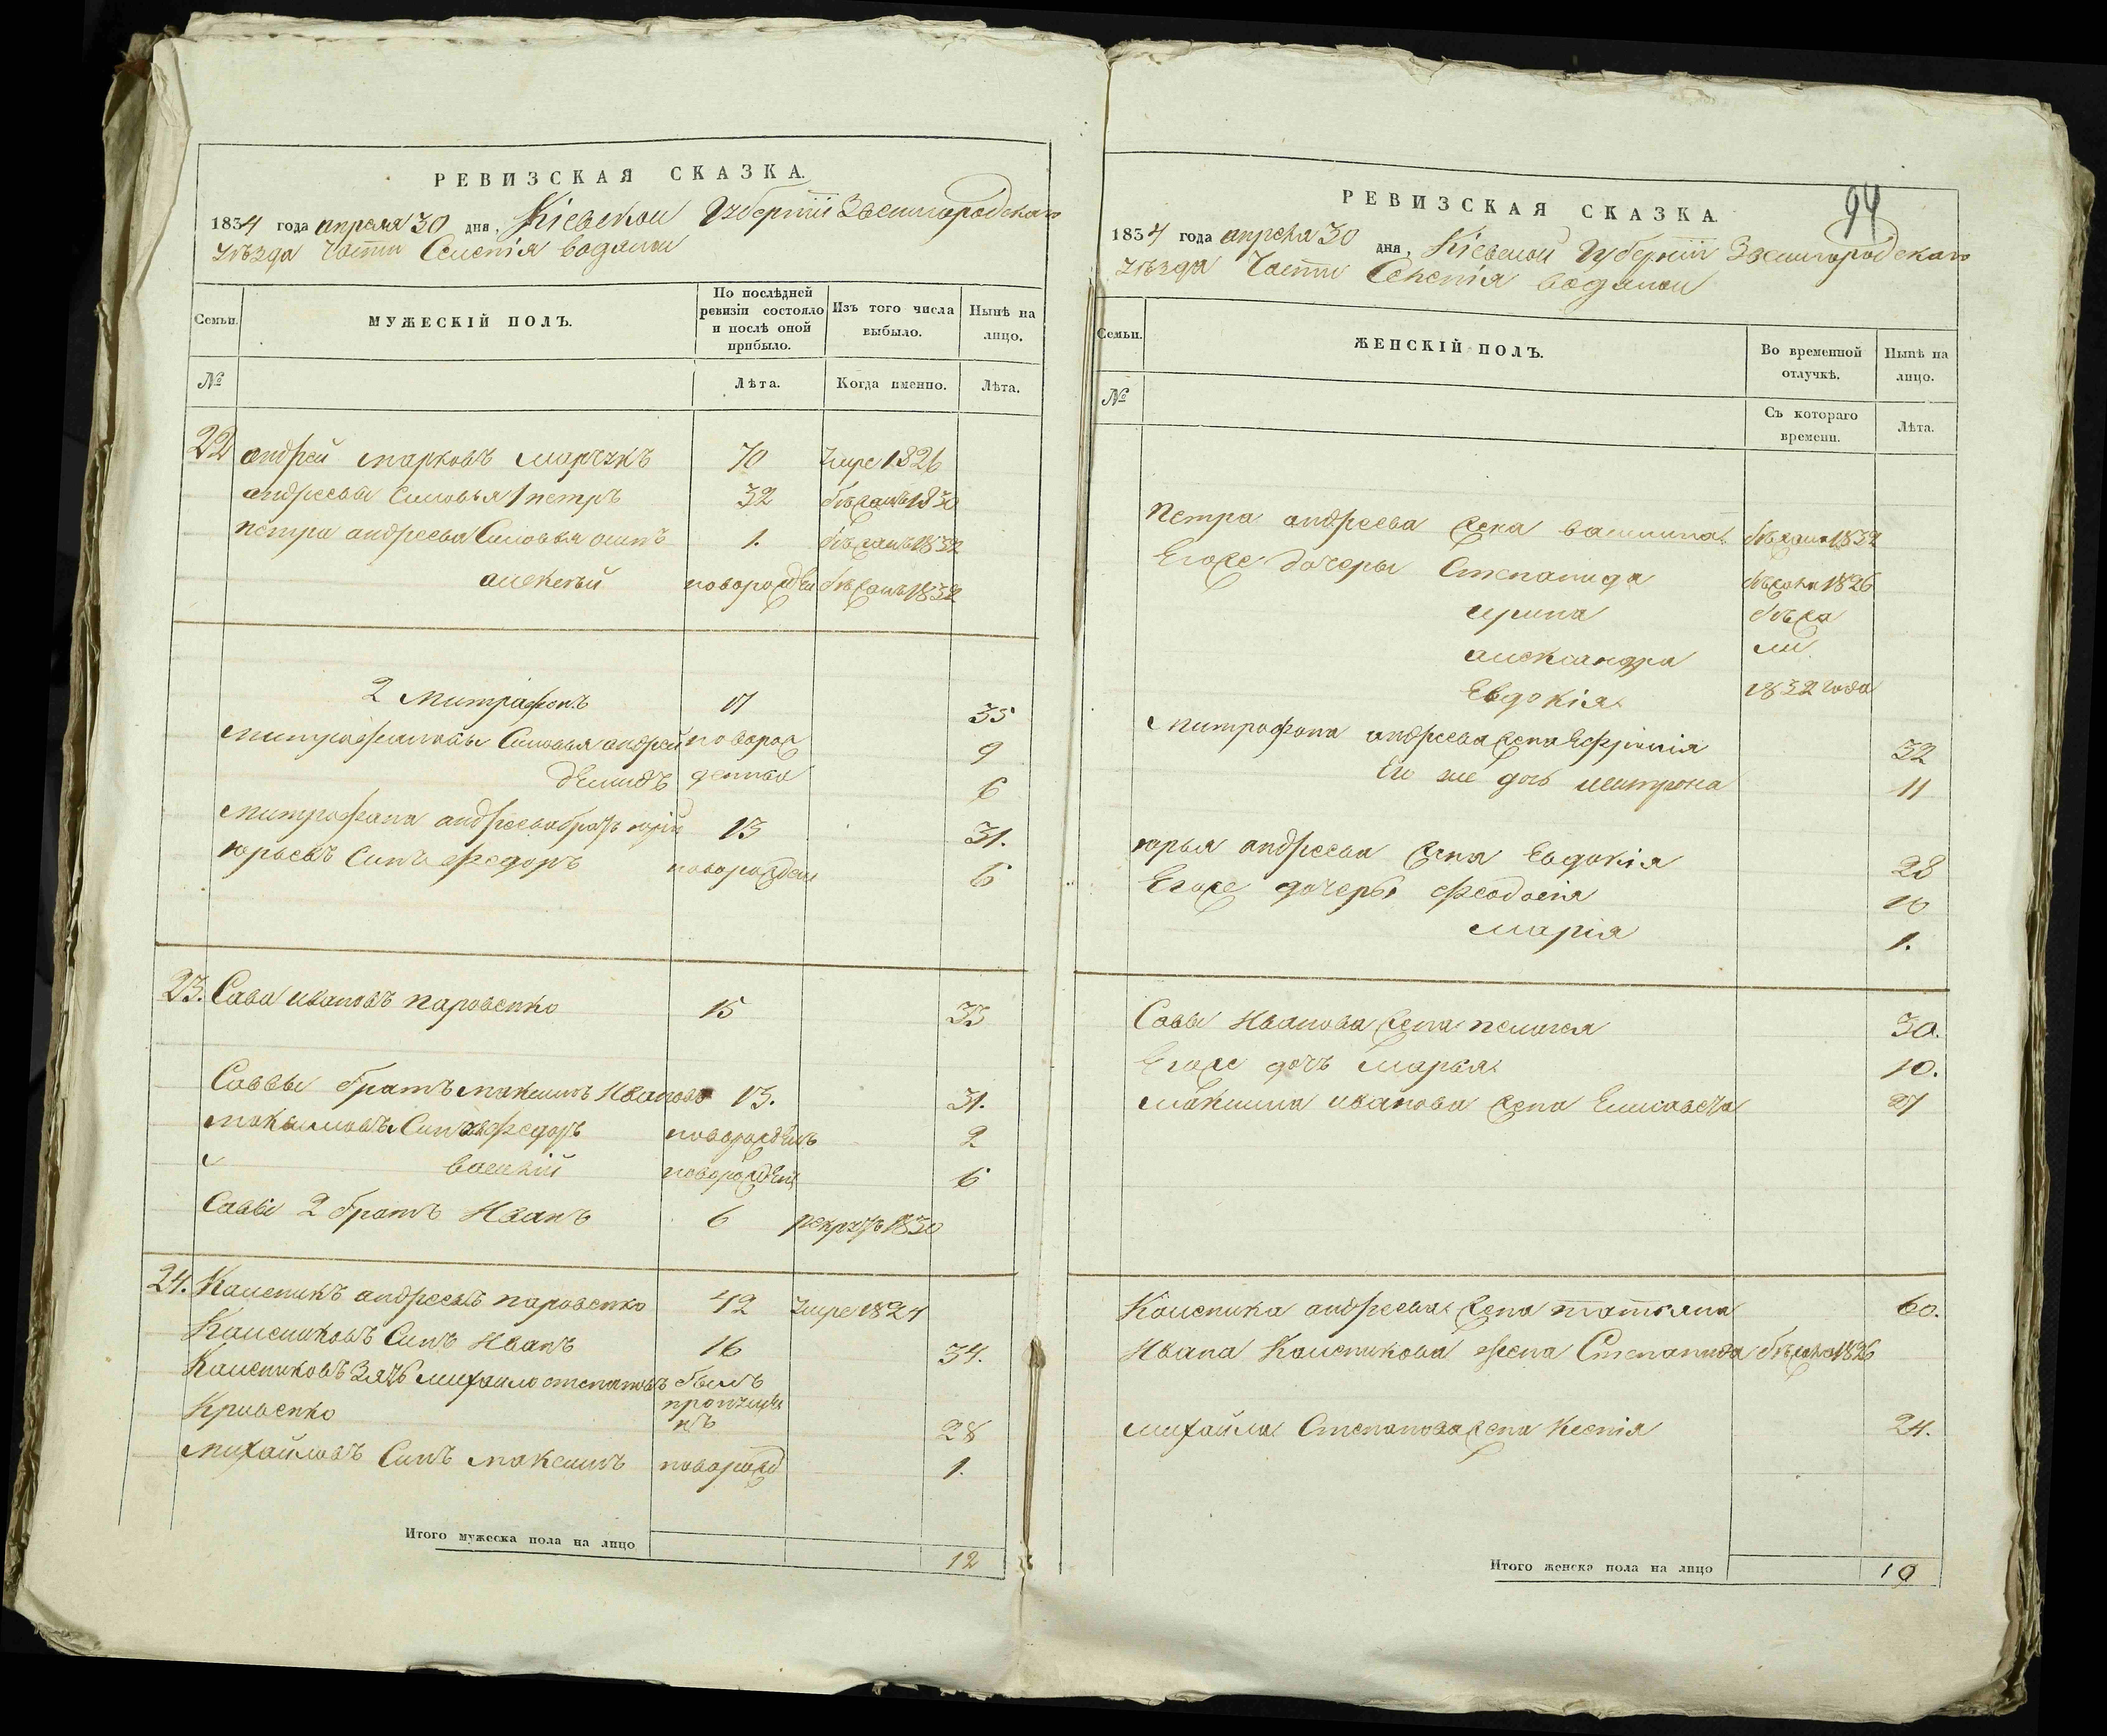 РЕВИЗСКАЯ СКАЗКА.
1834 года апреля 30 дня, Кіевской Губерніи Звенигородскаго
уѣзда Части Селенія Водяной
Семьи.
МУЖЕСКІЙ ПОЛЪ.
По послѣдней ревизіи состояло и послѣ оной прибыло.
Изъ того числа выбыло.
Нынѣ на лицо.
№
Лѣта.
Когда именно.
Лѣта.
22 андрей марковъ марчукъ 70 умре 1826
андреевы синовья 1 петръ 32 бѣжалъ 1830
петра андреева синовья осипъ 1. бѣжалъ 1832
алексѣй новорожден бѣжалъ 1832
2 митрофонъ 17 35
митрофановы синовья андрей новорож 9
демидъ денные 6
митрофана андреева братъ юрій 13 31.
юрьевъ синъ федоръ новорожден 6
23. Сава ивановъ паровенко 15 33
Саввы братъ максимъ Ивановъ 13. 31.
максимовы Синъ федоръ новорожденъ 2
василій новорожден 6
Савы 2 братъ Иванъ 6 рекрутъ 1830
24. Каленикъ андреевъ паровенко 42 умре 1827
Калениковъ Синъ Иванъ 16 34.
Калениковъ Зять михайло степановъ былъ
Кривенко пропущенъ 28
михайловъ Синъ максимъ новорожд 1.
Итого мужеска пола на лицо 12
94
РЕВИЗСКАЯ СКАЗКА.
1834 года апреля 30 дня, Кіевской Губерніи Звенигородскаго
уѣзда Части Селенія Водяной
Семьи.
ЖЕНСКІЙ ПОЛЪ.
Во временной отлучкѣ.
Нынѣ на лицо.
№
Съ котораго времени.
Лѣта.
петра андреева жена василина бѣжала 1832
Егоже дочеры Степанида бѣжала 1826
ирина бѣжа
александра ли
Евдокія 1832 года
митрофона андреева жена Ефросинія 32
Его же дочь митрона 11
юрья андреева жена Евдокія 28
Егоже дочеры феодосія 10
марія 1.
Савы Иванова жена пелагея 30.
Егоже дочъ марья 10.
максима иванова жена Елисавета 27
Каленика андреева жена татьяна 60.
Ивана Каленикова жена Степанида бѣжала 1826
михайла Степанова жена Ксенія 24.
Итого женска пола на лицо 10